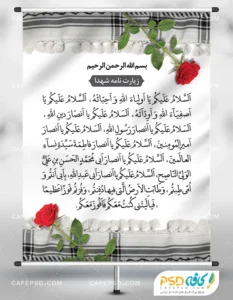 بسم الله الرحمن الرحیم
زیارت نامه شهدا
اَلسَّلامُ عَلَیکُم یا اَولِیاءَ اللهِ وَ اَحِبّائَهُ، اَلسَّلامُ عَلَیکُم یا
اَصفِیَآءَ اللهِ وَ اَوِدّآئَهُ، اَلسَّلامُ عَلَیکُم یا اَنصَارَ دینِ اللهِ،
اَلسَّلامُ عَلَیکُم یا اَنصارَ رَسُولِ اللهِ، اَلسَّلامُ عَلَیکُم یا اَنصارَ
اَمیرِالمُومِنینَ، اَلسَّلامُ عَلَیکُم یا اَنصارَ فاطِمَةَ سَیِّدَةِ نِسآءِ
العالَمینَ، اَلسَّلامُ عَلَیکُم یا اَنصارَ اَبی مُحَمَّدٍ الحَسَنِ بنِ عَلِیٍّ
الوَلِیِّ النّاصِحِ، اَلسَّلامُ عَلَیکُم یا اَنصارَ اَبی عَبدِ اللهِ، بِاَبی اَنتُم وَ
اُمّی طِبتُم، وَ طابَتِ الاَرضُ الَّتی فیها دُفِنتُم، وَ فُزتُم فَوزًا عَظیمًا
فَیا لَیتَنی کُنتُ مَعَکُم فَاَفُوزَ مَعَکُم.
CAFEPSD.COM
کافه PSD
CAFEPSD.COM